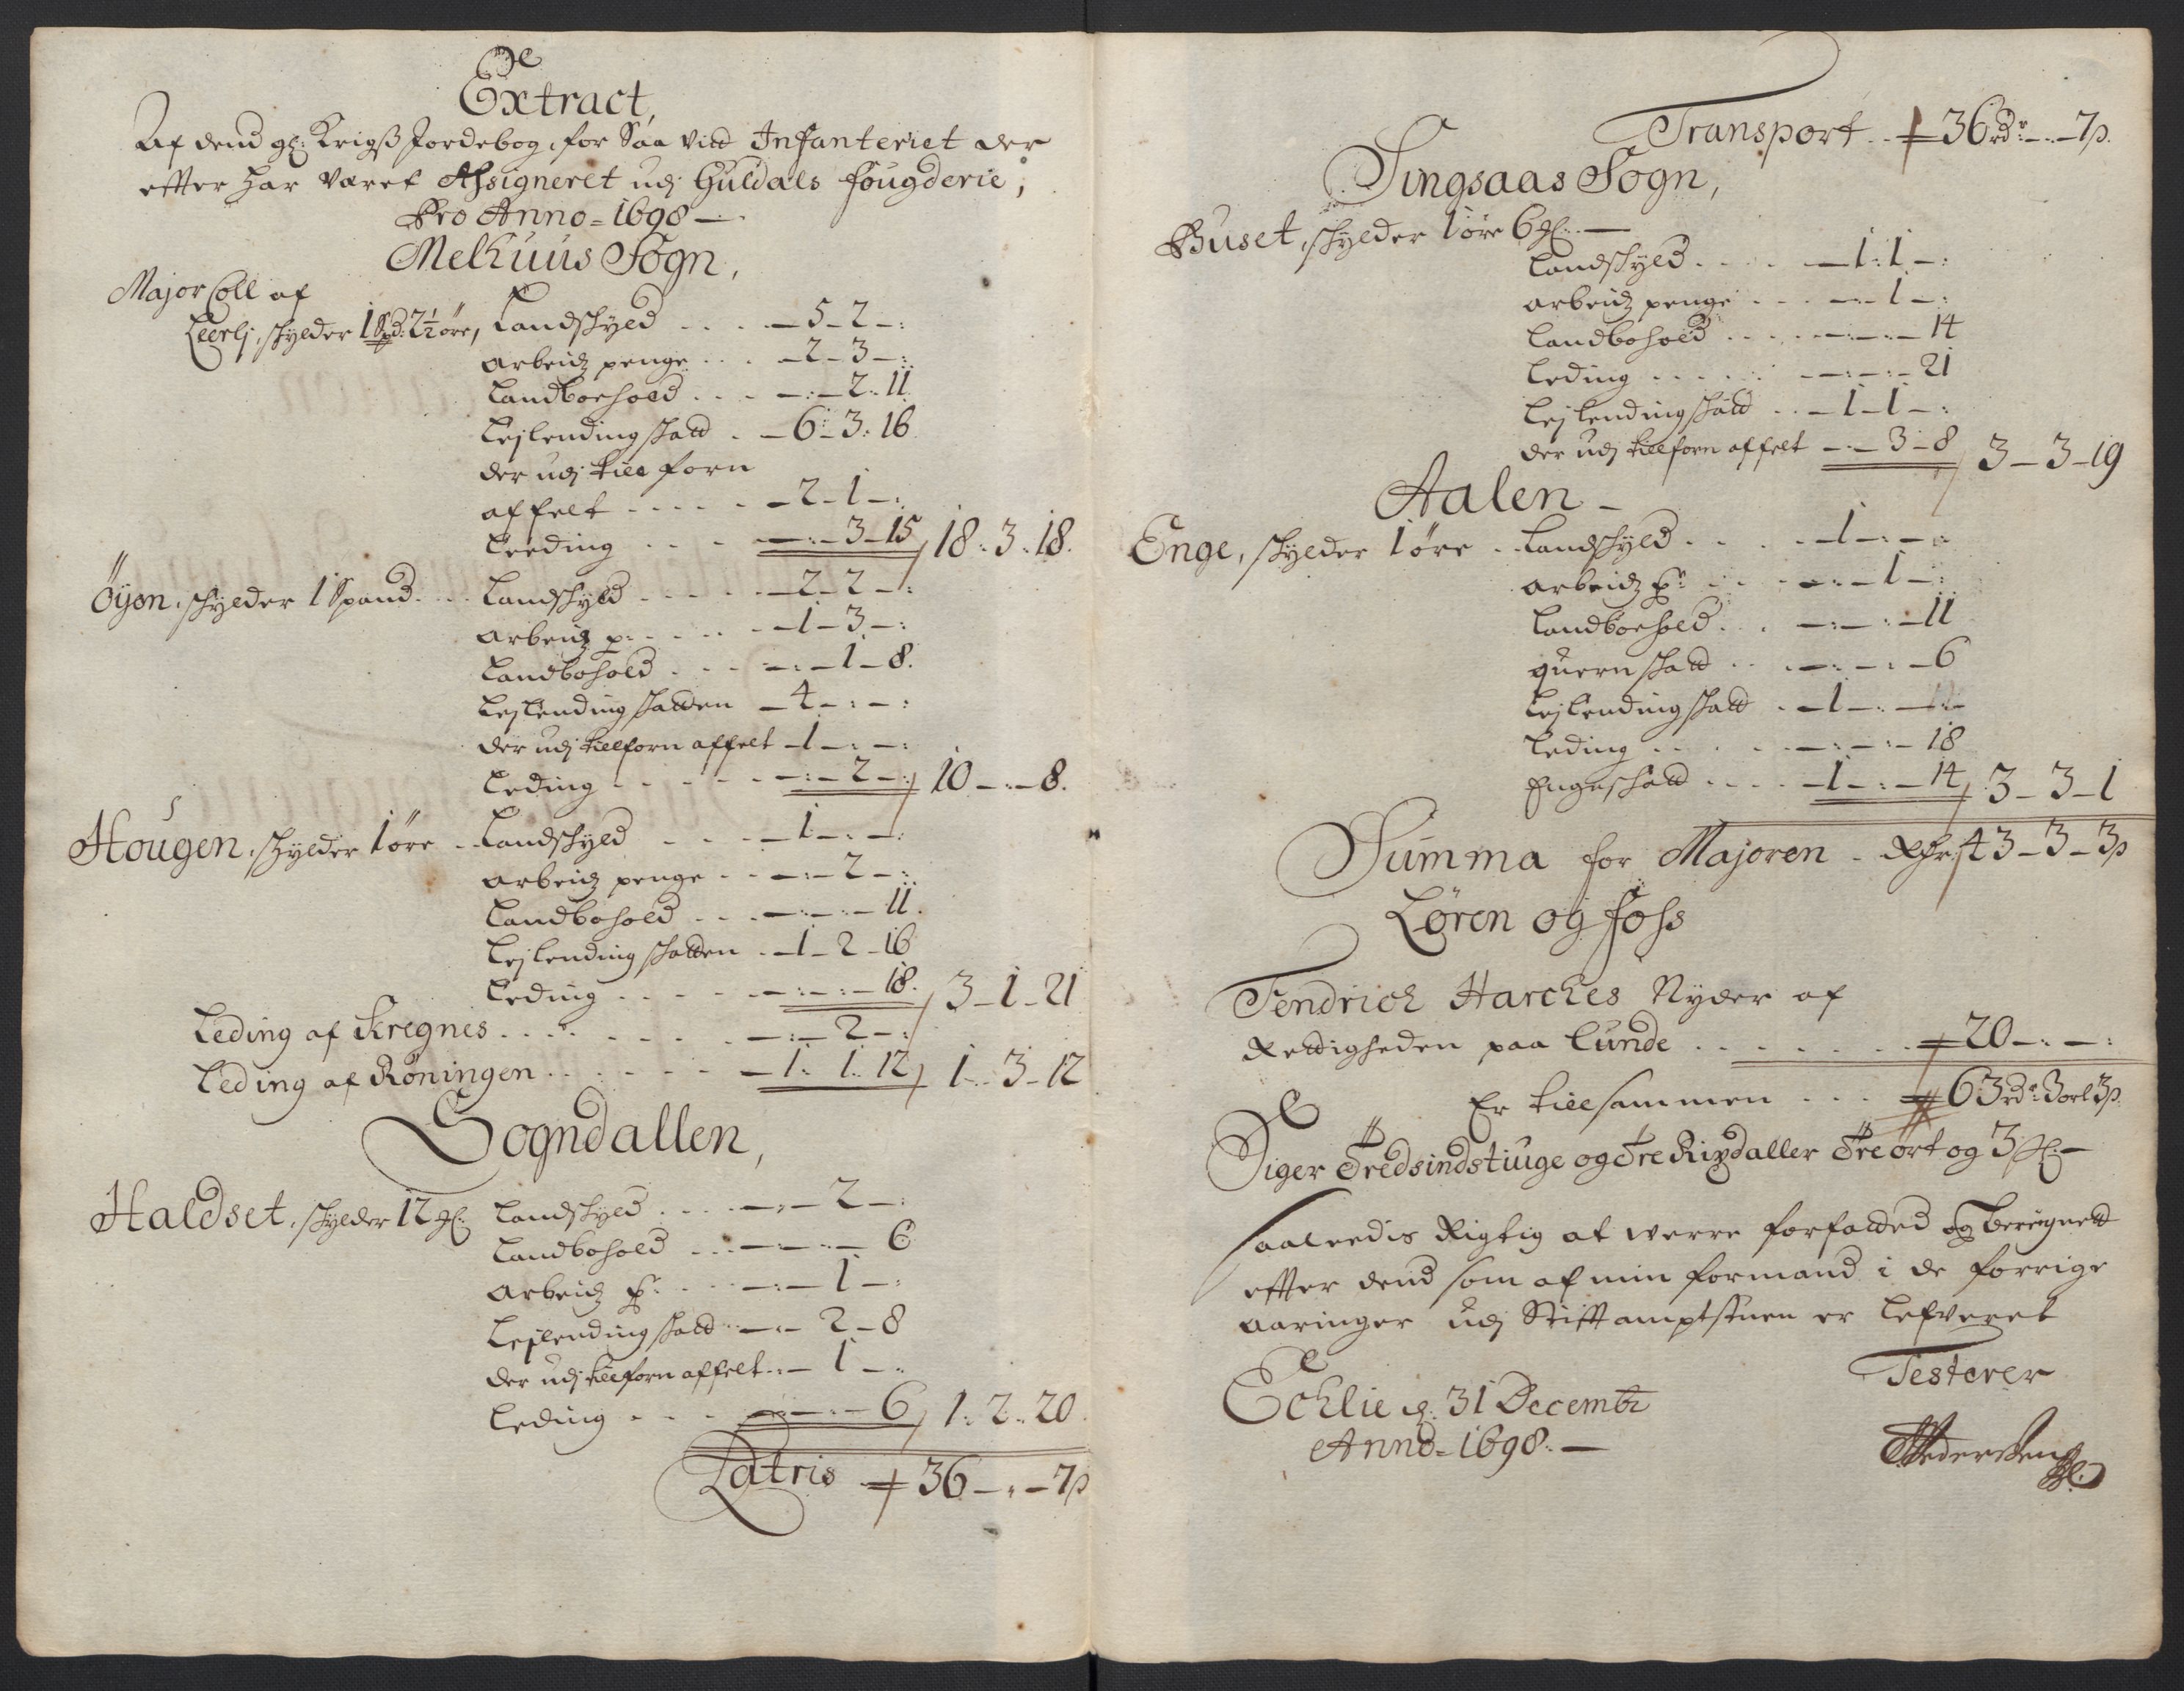 Extract,
Af dend gl: Krigs Jordebog, for Saa vitt Infanteriet der
effter har været Assigneret udj Guldals fougderie,
Pro Anno = 1698 —
Melhuus Sogn,
Major Coll af
Leerlj, schylder 1 Spd: 2½ øre, Landschyld .... — 5 – 2 – :
arbeidz penge ... – 2 – 3 – :
Landboehold .... – : – 2 : 11
Lejlending schatt . – 6 – 3 : 16
der udj till forn
affelt ..... – 2 – 1 – :
Leeding .... – : – 3 – 15 / 18 : 3 : 18.
Öÿen, schylder 1 Spand ... Landschyld .... – 2 – 2 – :
arbeidz p: .... – 1 – 3 – :
Landbohold .... – : – 1 – 8.
Lejlending schatten – 4 – : – :
der udj tillforn affelt – 1 – : – :
Leding ..... – : – 2 – : / 10 – : – 8.
Hougen, schylder 1 øre . Landschyld ... – 1 – : – :
arbeidz penge ... – : – 2 – :
Landbohold .... – : – : – 11.
Lejlending schatten . – 1 – 2 – 16
Leding ..... – : – : – 18. / 3 – 1 – 21
Leding af Kregnes ....... – : – 2 – :
Leding af Röningen ...... – 1 : 1 : 12 / 1 – 3 – 12
Sogndallen,
Haldset, schylder 12 gl: Landschyld .... – : – 2 – :
Landbohold ... – : – : – 6
Arbeidz p: ... – : – 1 – :
Lejlending schatt – : – 2 – 8
der udj tillforn affelt . : – 1 – :
Leding .... – : – : – 6 / 1 : 2 : 20.
Latris 36 – : – 7 ß
Transport .. 36 rdr – : – 7 ß.
Singsaas Sogn,
Buset, schylder 1 øre 6 gl: —
Landschyld .... – 1 : 1 – :
arbeidz penge ... – : – 1 – :
Landbohold .... – : – : – 14
Leding ..... – : – : – 21
Lejlending schatt .. – 1 – 1 – :
der udj tillforn affelt – : – 3 – 8 / 3 – 3 – 19
Aalen –
Enge, schylder 1 øre . Landschyld .... – 1 – : – :
arbeidz p: ... – : – 1 – :
Landboehold ... – : – : – 11
quern schatt ... – : – : – 6
Lejlending schatt . – 1 – : – :
Leding ..... – : – : – 18
Engeschatt .... – 1 – : – 14 / 3 – 3 – 1
Summa for Majoren – Rdr 43 – 3 – 3 ß
Løren og Foss
Fendrich Harckes Nyder af
Rettigheden paa Lunde ....... 20 – : – :
Er tillsammen ... 63 rdr: 3 ort 3 ß.
Siger Tredsindstiuge og Tre Rixdaller Tre ort og 3 ß: —
Saaleedis Rigtig at verre forfatted og beregnett
effter dend som af min formand i de forrige
aaringer udj Stifftamptstuen er lefveret
Testerer
Echlie d: 31 Decembr
Anno = 1698. —